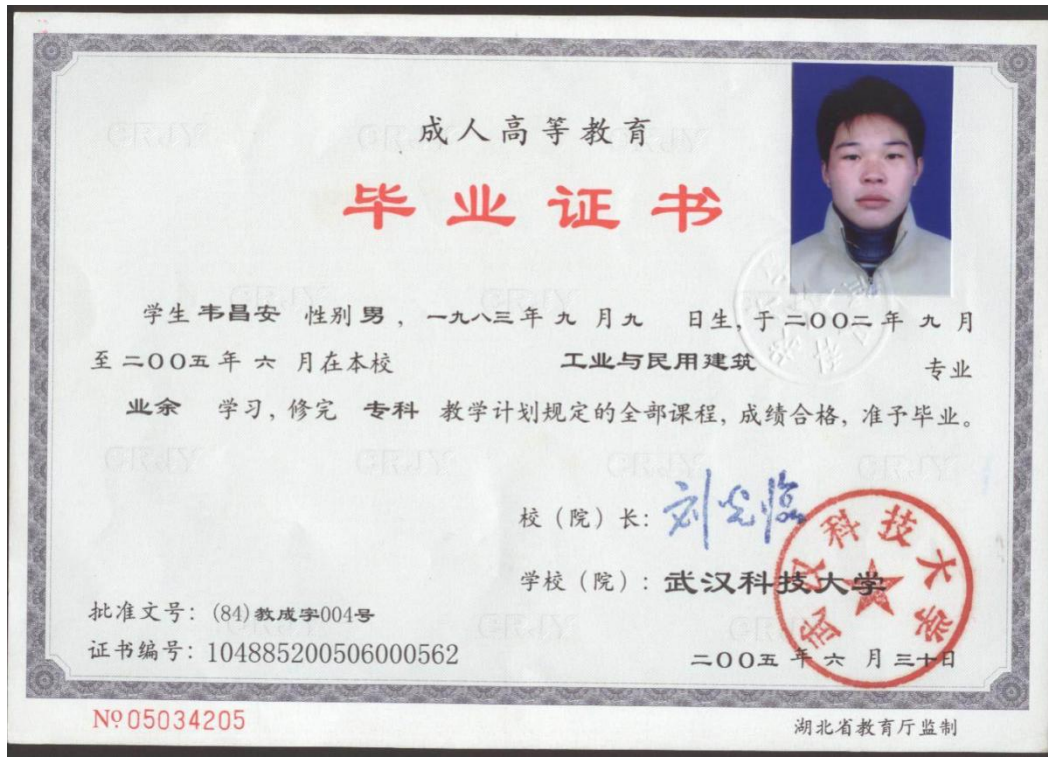 成人高等教育
毕业证书
学生 韦昌安 性别 男，一九八三年九月九日生，于二〇〇二年九月
至二〇〇五年六月在本校 工业与民用建筑 专业
业余 学习，修完 专科 教学计划规定的全部课程，成绩合格，准予毕业。
校（院）长：刘光临
学校（院）：武汉科技大学
武汉科技大学
批准文号：(84)教成字004号
证书编号：104885200506000562
二〇〇五年六月三十日
№05034205
湖北省教育厅监制